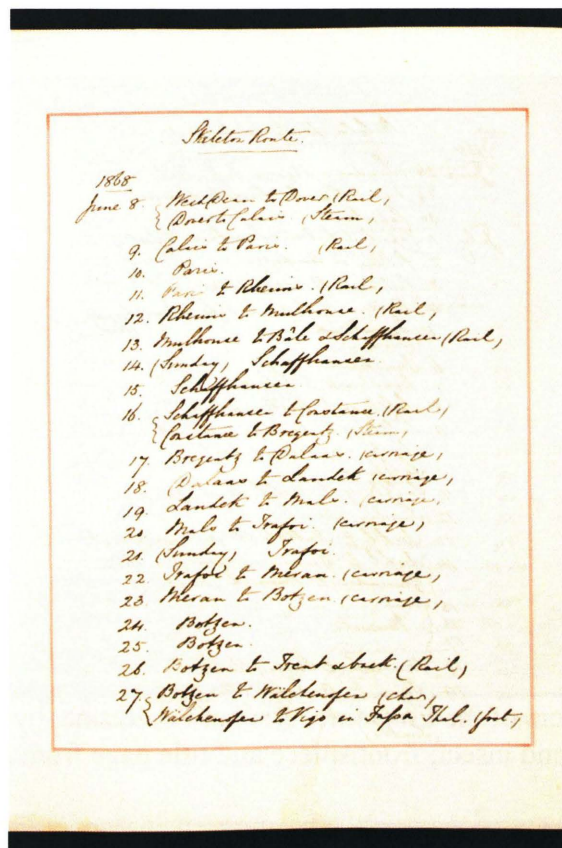 Skeleton Route.
1868
June 8. West Dean to Dover (Rail,
Dover to Calais (Steam,
9. Calais to Paris. (Rail,
10. Paris.
11. Paris to Rheims. (Rail,
12. Rheims to Mulhouse. (Rail,
13. Mulhouse to Bâle & Schaffhausen (Rail,
14. (Sunday, Schaffhausen.
15. Schaffhausen
16. Schaffhausen to Constance. (Rail,
Constance to Bregentz. (Steam,
17. Bregentz to Dalaas. (carriage,
18. Dalaas to Landek (carriage,
19. Landek to Mals. (carriage,
20. Mals to Trafoi. (carriage,
21. (Sunday, Trafoi.
22. Trafoi to Meran. (carriage,
23. Meran to Botzen. (carriage,
24. Botzen.
25. Botzen.
26. Botzen to Trent & back. (Rail,
27. Botzen to Wälchenofen (char,
Wälchenofen to Vigo in Fassa Thal. (foot,